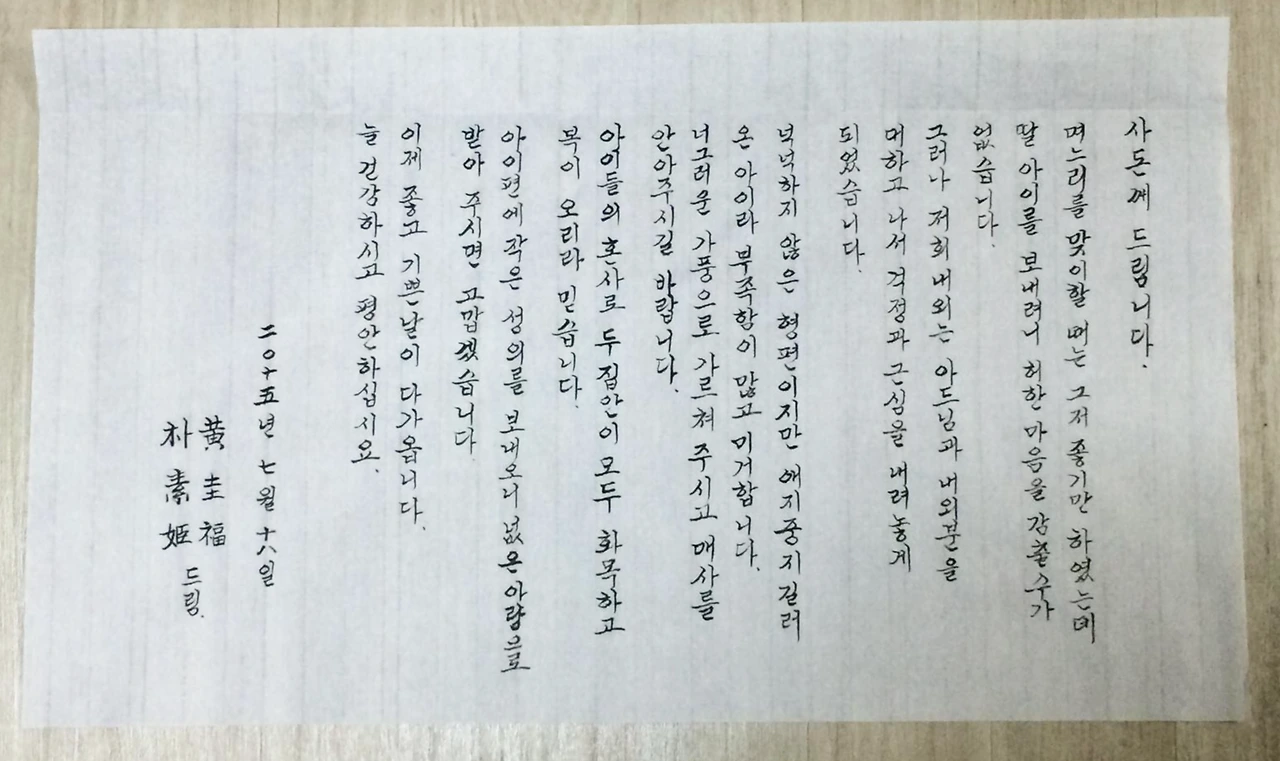 사돈께 드립니다.
며느리를 맞이할 때는 그저 좋기만 하였는데
딸 아이를 보내려니 허한 마음을 감출 수가
없습니다.
그러나 저희 내외는 아드님과 내외분을
대하고 나서 걱정과 근심을 내려놓게
되었습니다.
넉넉하지 않은 형편이지만 애지중지 길러
온 아이라 부족함이 많고 미거합니다.
너그러운 가풍으로 가르쳐 주시고 매사를
안아주시길 바랍니다.
아이들의 혼사로 두 집안이 모두 화목하고
복이 오리라 믿습니다.
아이편에 작은 성의를 보내오니 넓은 아량으로
받아 주시면 고맙겠습니다
이제 좋고 기쁜날이 다가옵니다.
늘 건강하시고 평안하십시요.
二○十五년 七월 十八일
黃圭福
朴素姬 드림.